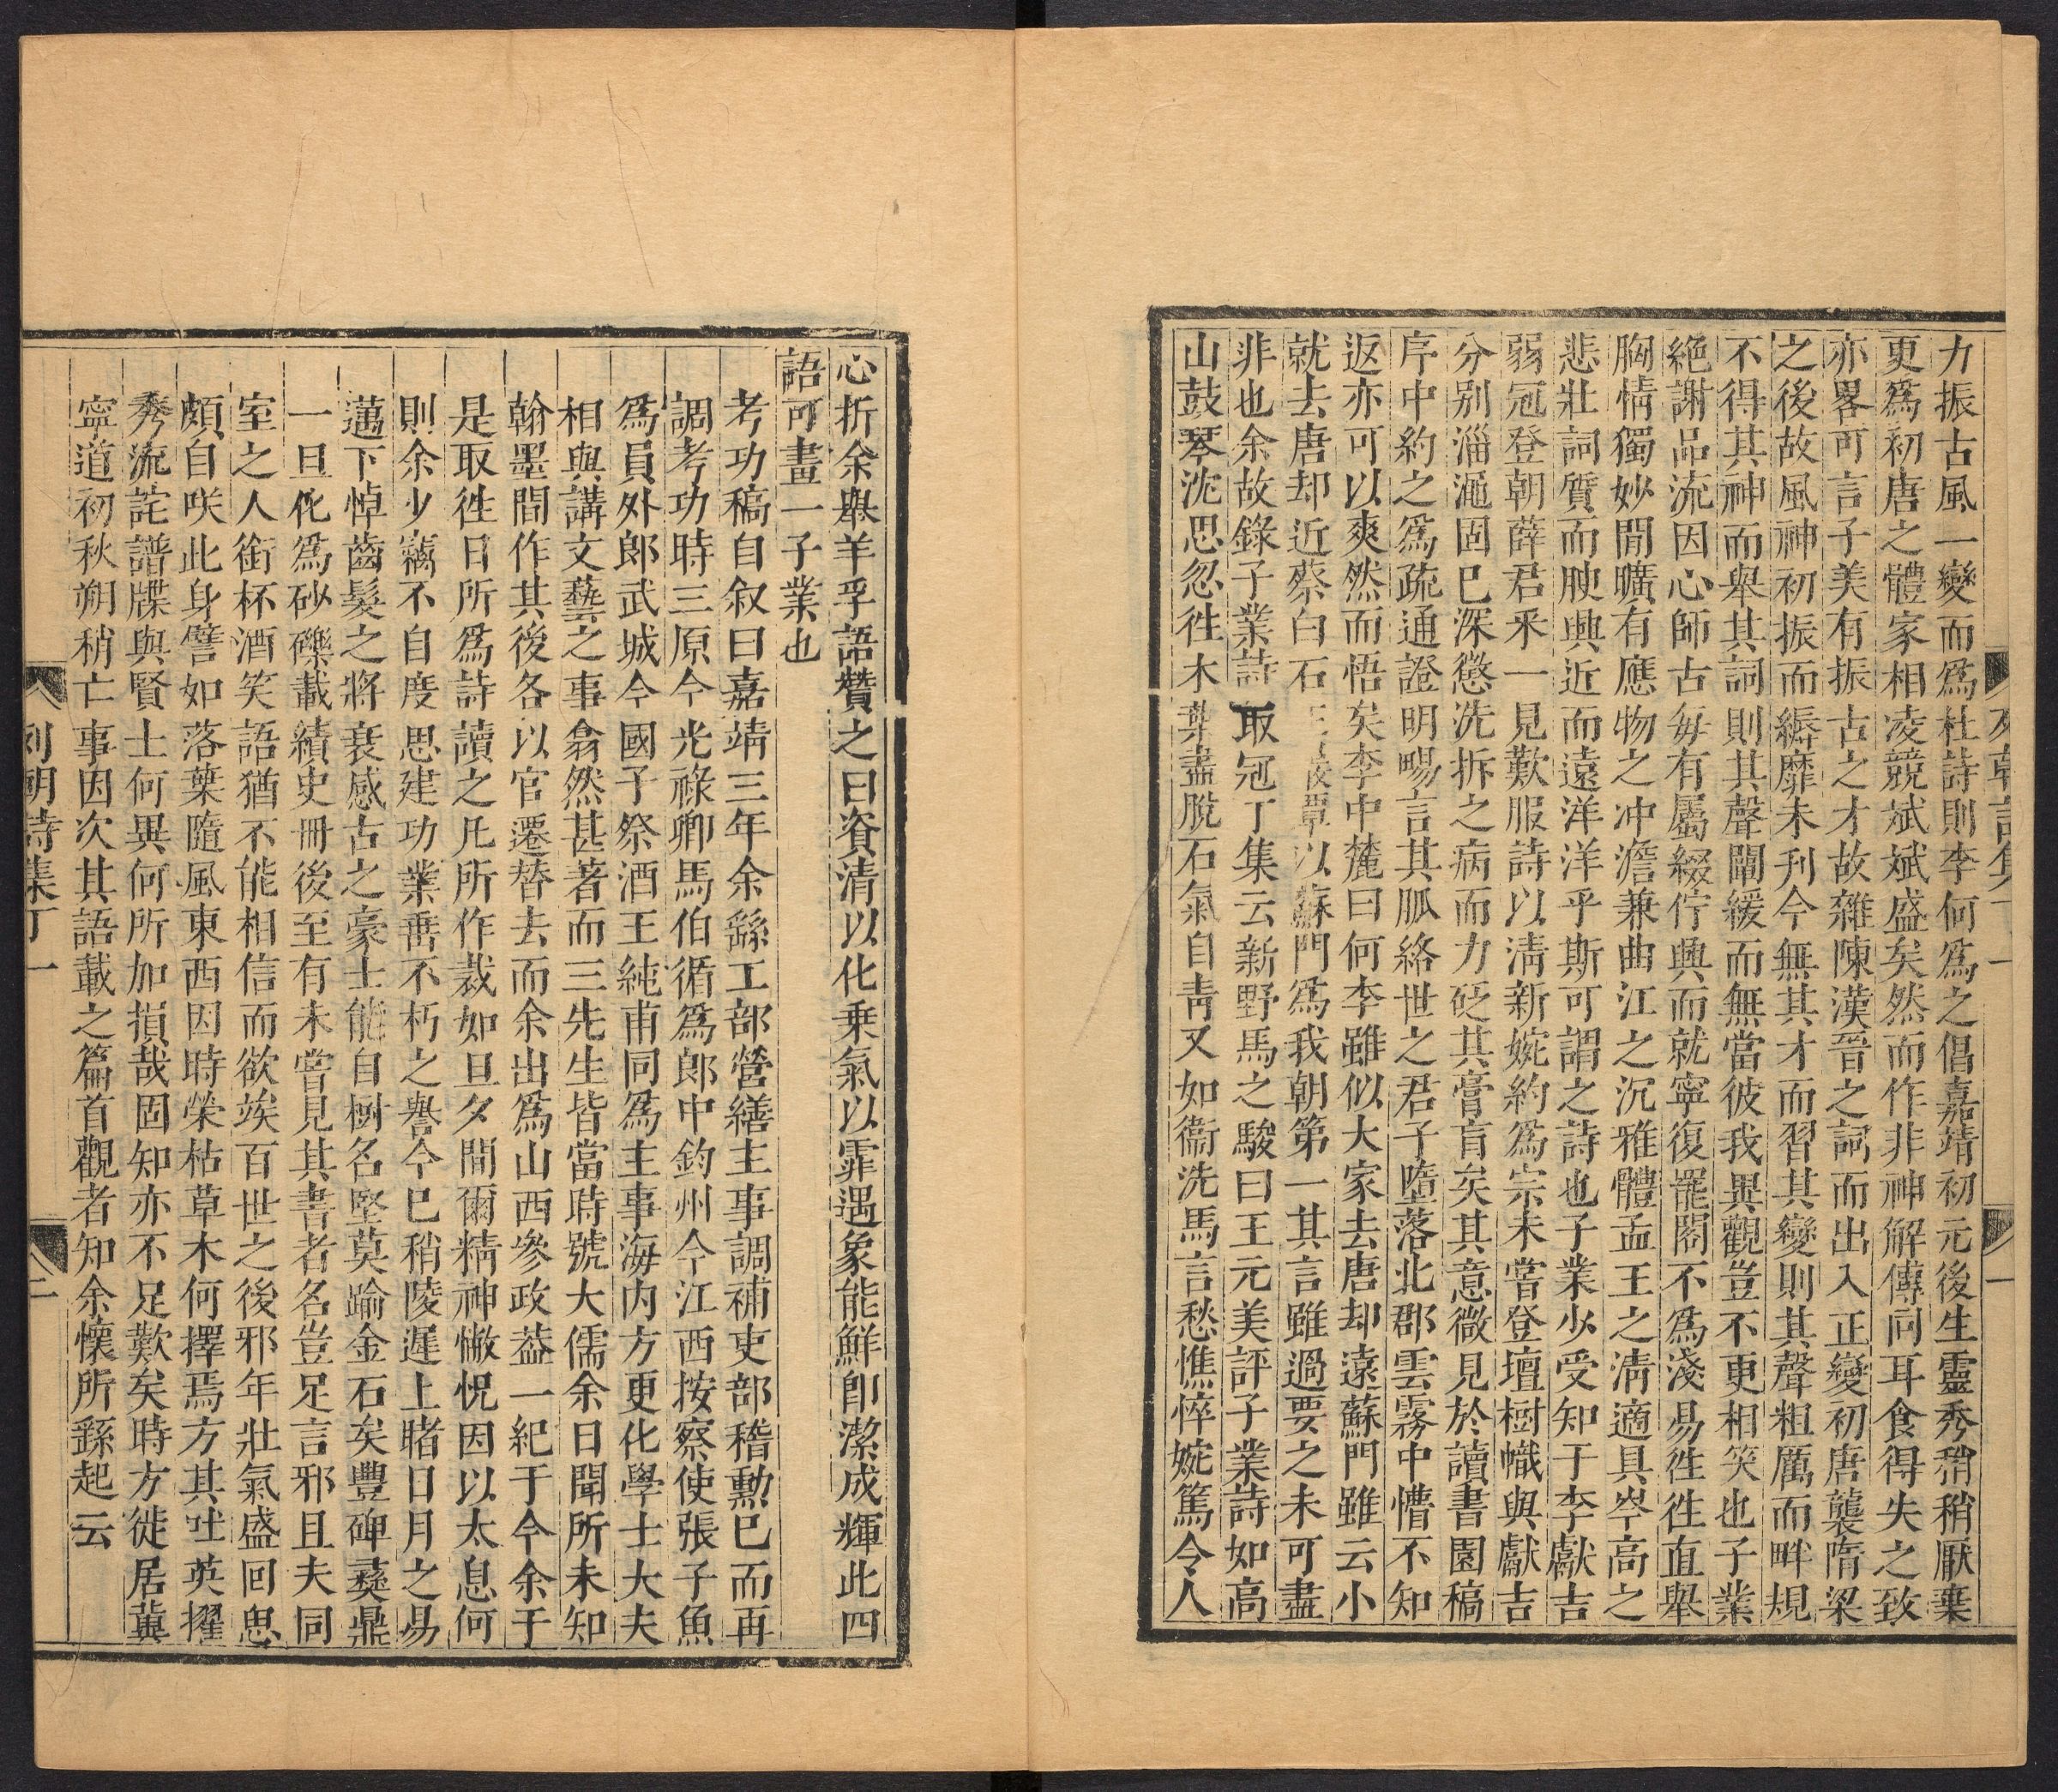 力振古風一變而爲杜詩則李何爲之倡嘉靖初元後生靈秀稍稍厭棄
更爲初唐之體家相凌競斌斌盛矣然而作非神解傳同耳食得失之致
亦畧可言子美有振古之才故雜陳漢晉之詞而出入正變初唐襲隋梁
之後故風神初振而縟靡未刋今無其才而習其變則其聲粗厲而畔規
不得其神而舉其詞則其聲闡緩而無當彼我異觀豈不更相笑也子業
絕謝品流因心師古每有屬綴佇興而就寧復罷閣不爲淺易徃徃直舉
胸情獨妙閒曠有應物之冲澹兼曲江之沉雅體孟王之淸適具岑高之
悲壯詞質而腴興近而遠洋洋乎斯可謂之詩也子業少受知于李獻吉
弱冠登朝薛君采一見歎服詩以淸新婉約爲宗未嘗登壇樹幟與獻吉
分别淄澠固已深懲洗拆之病而力砭其膏肓矣其意微見於讀書園稿
序中約之爲疏通證明暢言其脈絡世之君子墮落北郡雲霧中懵不知
返亦可以爽然而悟矣李中麓曰何李雖似大家去唐却遠蘇門雖云小
就去唐却近蔡白石王　　以蘇門爲我朝第一其言雖過要之未可盡
非也余故錄子業詩　取冠丁集云新野馬之駿曰王元美評子業詩如高
山鼓琴沈思忽徃木葉盡脫石氣自靑又如衞洗馬言愁憔悴婉篤令人
列朝詩集丁一　一
心折余舉羊孚語贊之曰資淸以化乗氣以霏遇象能鮮卽潔成輝此四
語可畫一子業也
考功稿自叙曰嘉靖三年余繇工部營繕主事調補吏部稽勳已而再
調考功時三原今光祿卿馬伯循爲郎中鈞州今江西按察使張子魚
爲員外郎武城今國子祭酒王純甫同爲主事海内方更化學士大夫
相與講文藝之事翕然甚著而三先生皆當時號大儒余日聞所未知
翰墨間作其後各以官遷替去而余出爲山西參政葢一紀于今余于
是取徃日所爲詩讀之凡所作裁如旦夕間爾精神憊怳因以太息何
則余少竊不自度思建功業垂不朽之譽今已稍陵遲上睹日月之易
邁下悼齒髮之將衰感古之豪士能自樹名堅莫踰金石矣豐碑彝鼎
一旦化爲砂礫載績史冊後至有未嘗見其書者名豈足言邪且夫同
室之人銜杯酒笑語猶不能相信而欲竢百世之後邪年壯氣盛回思
頗自咲此身譬如落葉隨風東西因時榮枯草木何擇焉方其吐英擢
秀流詫譜牒與賢士何異何所加損哉固知亦不足歎矣時方徙居冀
寧道初秋朔稍亡事因次其語載之篇首觀者知余懷所繇起云
列朝詩集丁一　二